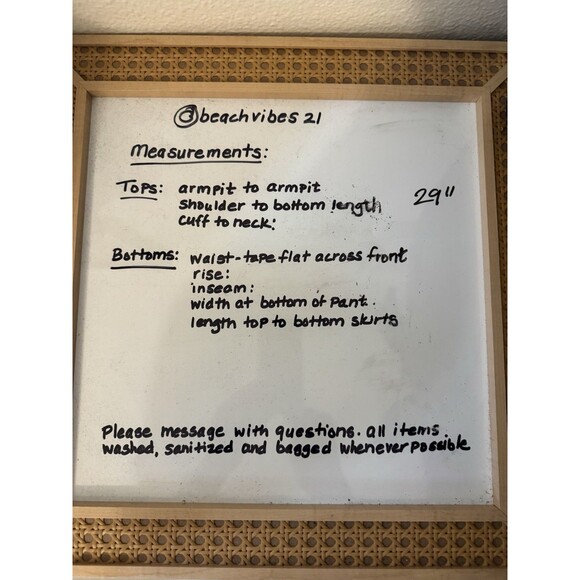 @beachvibes 21
Measurements:
Tops: armpit to armpit
shoulder to bottom length 29"
cuff to neck:
Bottoms: waist-tape flat across front
rise:
inseam:
width at bottom of pant.
length top to bottom skirts
Please message with questions. all items
washed, sanitized and bagged whenever possible